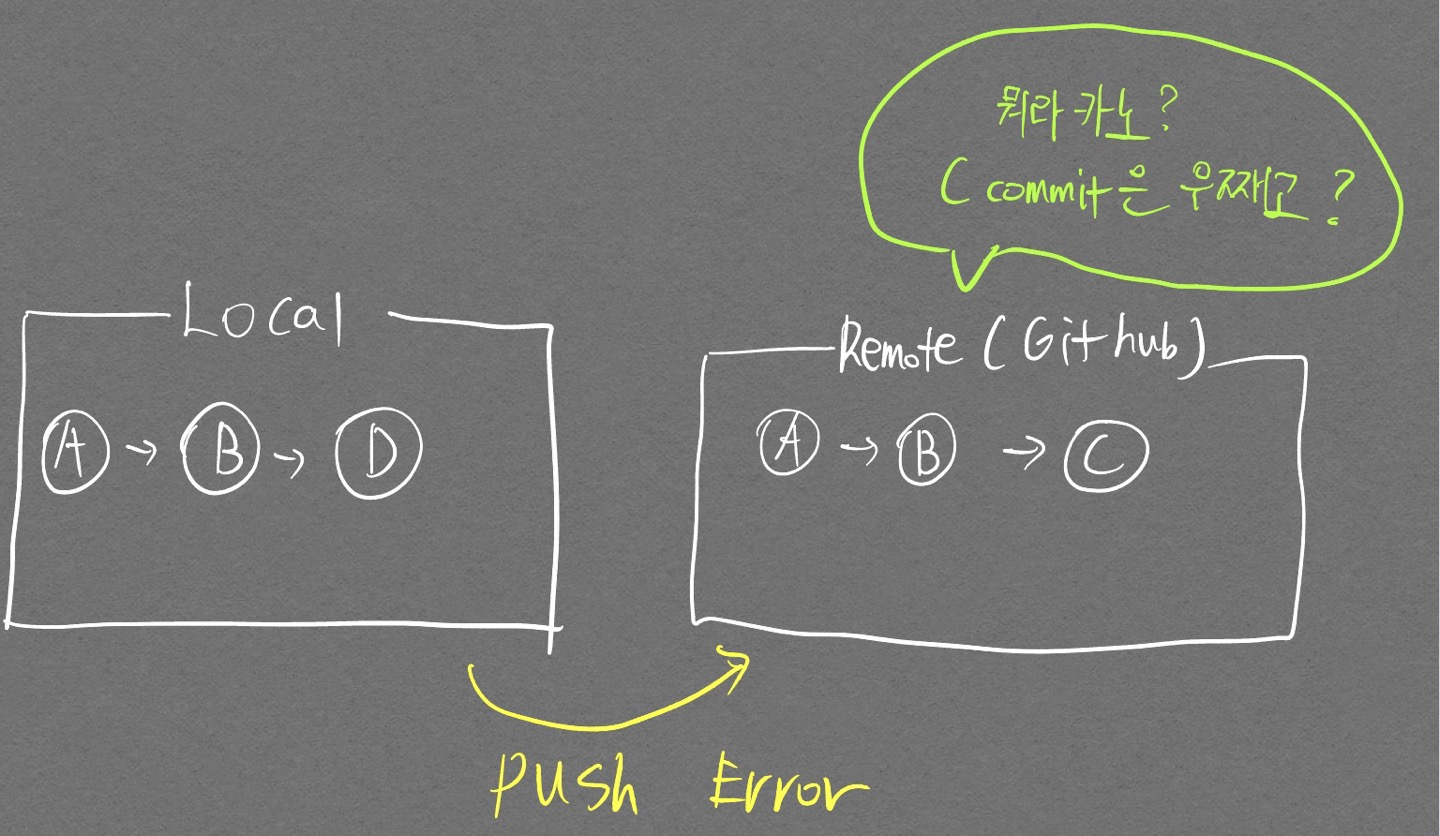 뭐라 카노?
C commit은 우짜고?
Local
Remote (Github)
A → B → D
A → B → C
Push Error